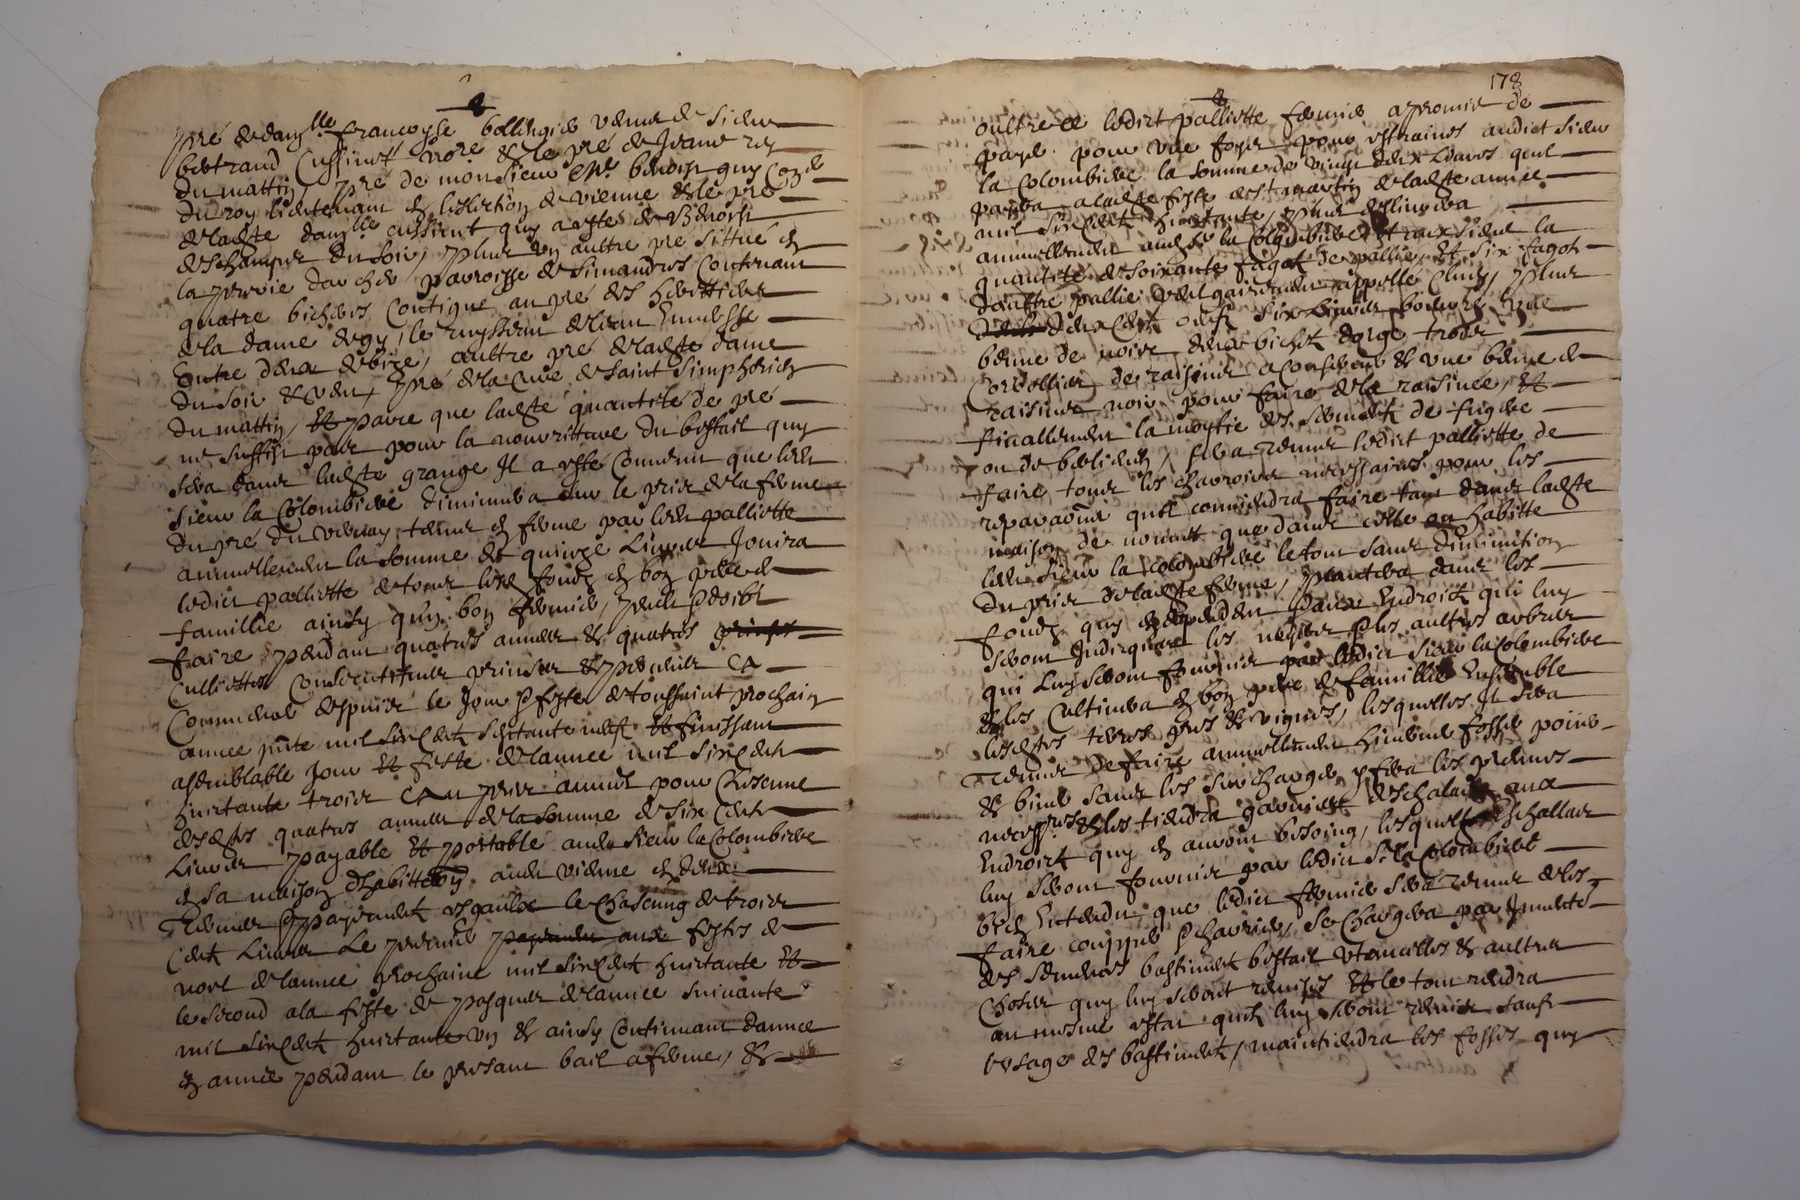 pré de dam.lle francoyse bellingier veuve de sieur
bertrand Cussinet vore & le pré de Jeane rey
du mattin, pré de monsieur Me benoist quy Con.er
du roy lieutenant en leslection de vienne & le pré
de ladte dam.lle cussinet quy a esté de
deschamps du soir, plus un aultre pré sittué en
la parroisse de Simandres Contenant
quatre bicheres Contigue au pré des heritiers
de la dame degy, le ruysseau de leau
Entre deux de bize, aultre pré de ladte dame
du soir & vent, pré de la Cure de saint simphorien
du mattin, Et parce que ladte quantité de pré
ne suffist pour pour la nourritture du bestail quy
sera dans ladte grange Il a esté Convenu que ledit
sieur la Colombiere diminuera sur le prix de la ferme
du pré du vernay tenue en ferme par ledit palliotte
annuellement la somme de quinze Livres Jouira
ledict palliotte de tous lesd fondz en bon pere de
famillie ainsy qun bon fermier, peult & doibt
faire pendant quatres annees & quatres prinses
Culliettes Consecutifves prinses & perceues CA
Commencer despuis le Jour & feste de toussaint prochain
annee pnte mil sixcentz septante neuf Et finissant
a semblable Jour Et feste de lannee mil sixcentz
huictante trois CA u prix annuel pour Chacune
desdtes quatres annees de la somme de six Centz
Livres payable Et portable aud sieur la Colombiere
en sa maison dhabittaon aud vienne en deux
Termes & payementz esgaulx le Chascung de trois
Centz Livres Le premier payement aux festes de
noel de lannee prochaine mil sixcentz huictante Et
le second a la feste de pasques de lannee suivante
mil sixcentz huictante un & ainsy Continuant dannee
en annee pendant le presant bail a ferme, &
178
oultre ce ledict palliotte fermier a promis de
payer pour une foys pour estraines audict sieur
la Colombiere la somme de vingt deux Livres quil
payera a ladte feste de st martin de ladte annee
mil sixcentz huictante, plus dellivrera
annuellement aud sr la Colombiere
quantité de soixante fagotz de pallie, Et six fagotz
daultre pallie vulgairement appellé Cluy, plus
deux Centz oeufz six livres beurre une
benne de noix, deux bichetz dorge trois
Corbellies de raisins a Conserver & une benne de
raisins noir pour faire de la raisinee, Et
finallement la moytie des
ou de, sera Tenus ledict palliotte de
faire tous les charrois necessaires pour les
reparaons quil conviendra faire tant dans ladte
maison de que dans celle ou habitte
ledit sieur la colombiere le tout sans diminution
du prix de ladte ferme, plantera dans les
fondz quy en dependent & aux Endroictz qui luy
seront Indicques les & les aultres arbres
qui luy seront fournis par ledict sieur la colombiere
& les Cultivera en bon pere de famillie Ensemble
lesdtes terres pres & vignes, lesquelles Il sera
Tenus de faire annuellement
& biner sans les surcharger y fera les
necessres & les tiendra garnies deschalatz aux
Endroictz quy en auront besoing, lesquelz Eschallatz
luy seront fournis par ledict sr la Colombiere
bien Entendu que ledict fermier sera Tenus de les
faire coupper & charrier, se chargera par Inventé
des semences bastimentz bestail utencilles & aultres
Choses quy luy seront remises Et le tout rendra
au mesme estat quilz luy seront remis sauf
lusage des bastimentz, maintiendra les fosses quy